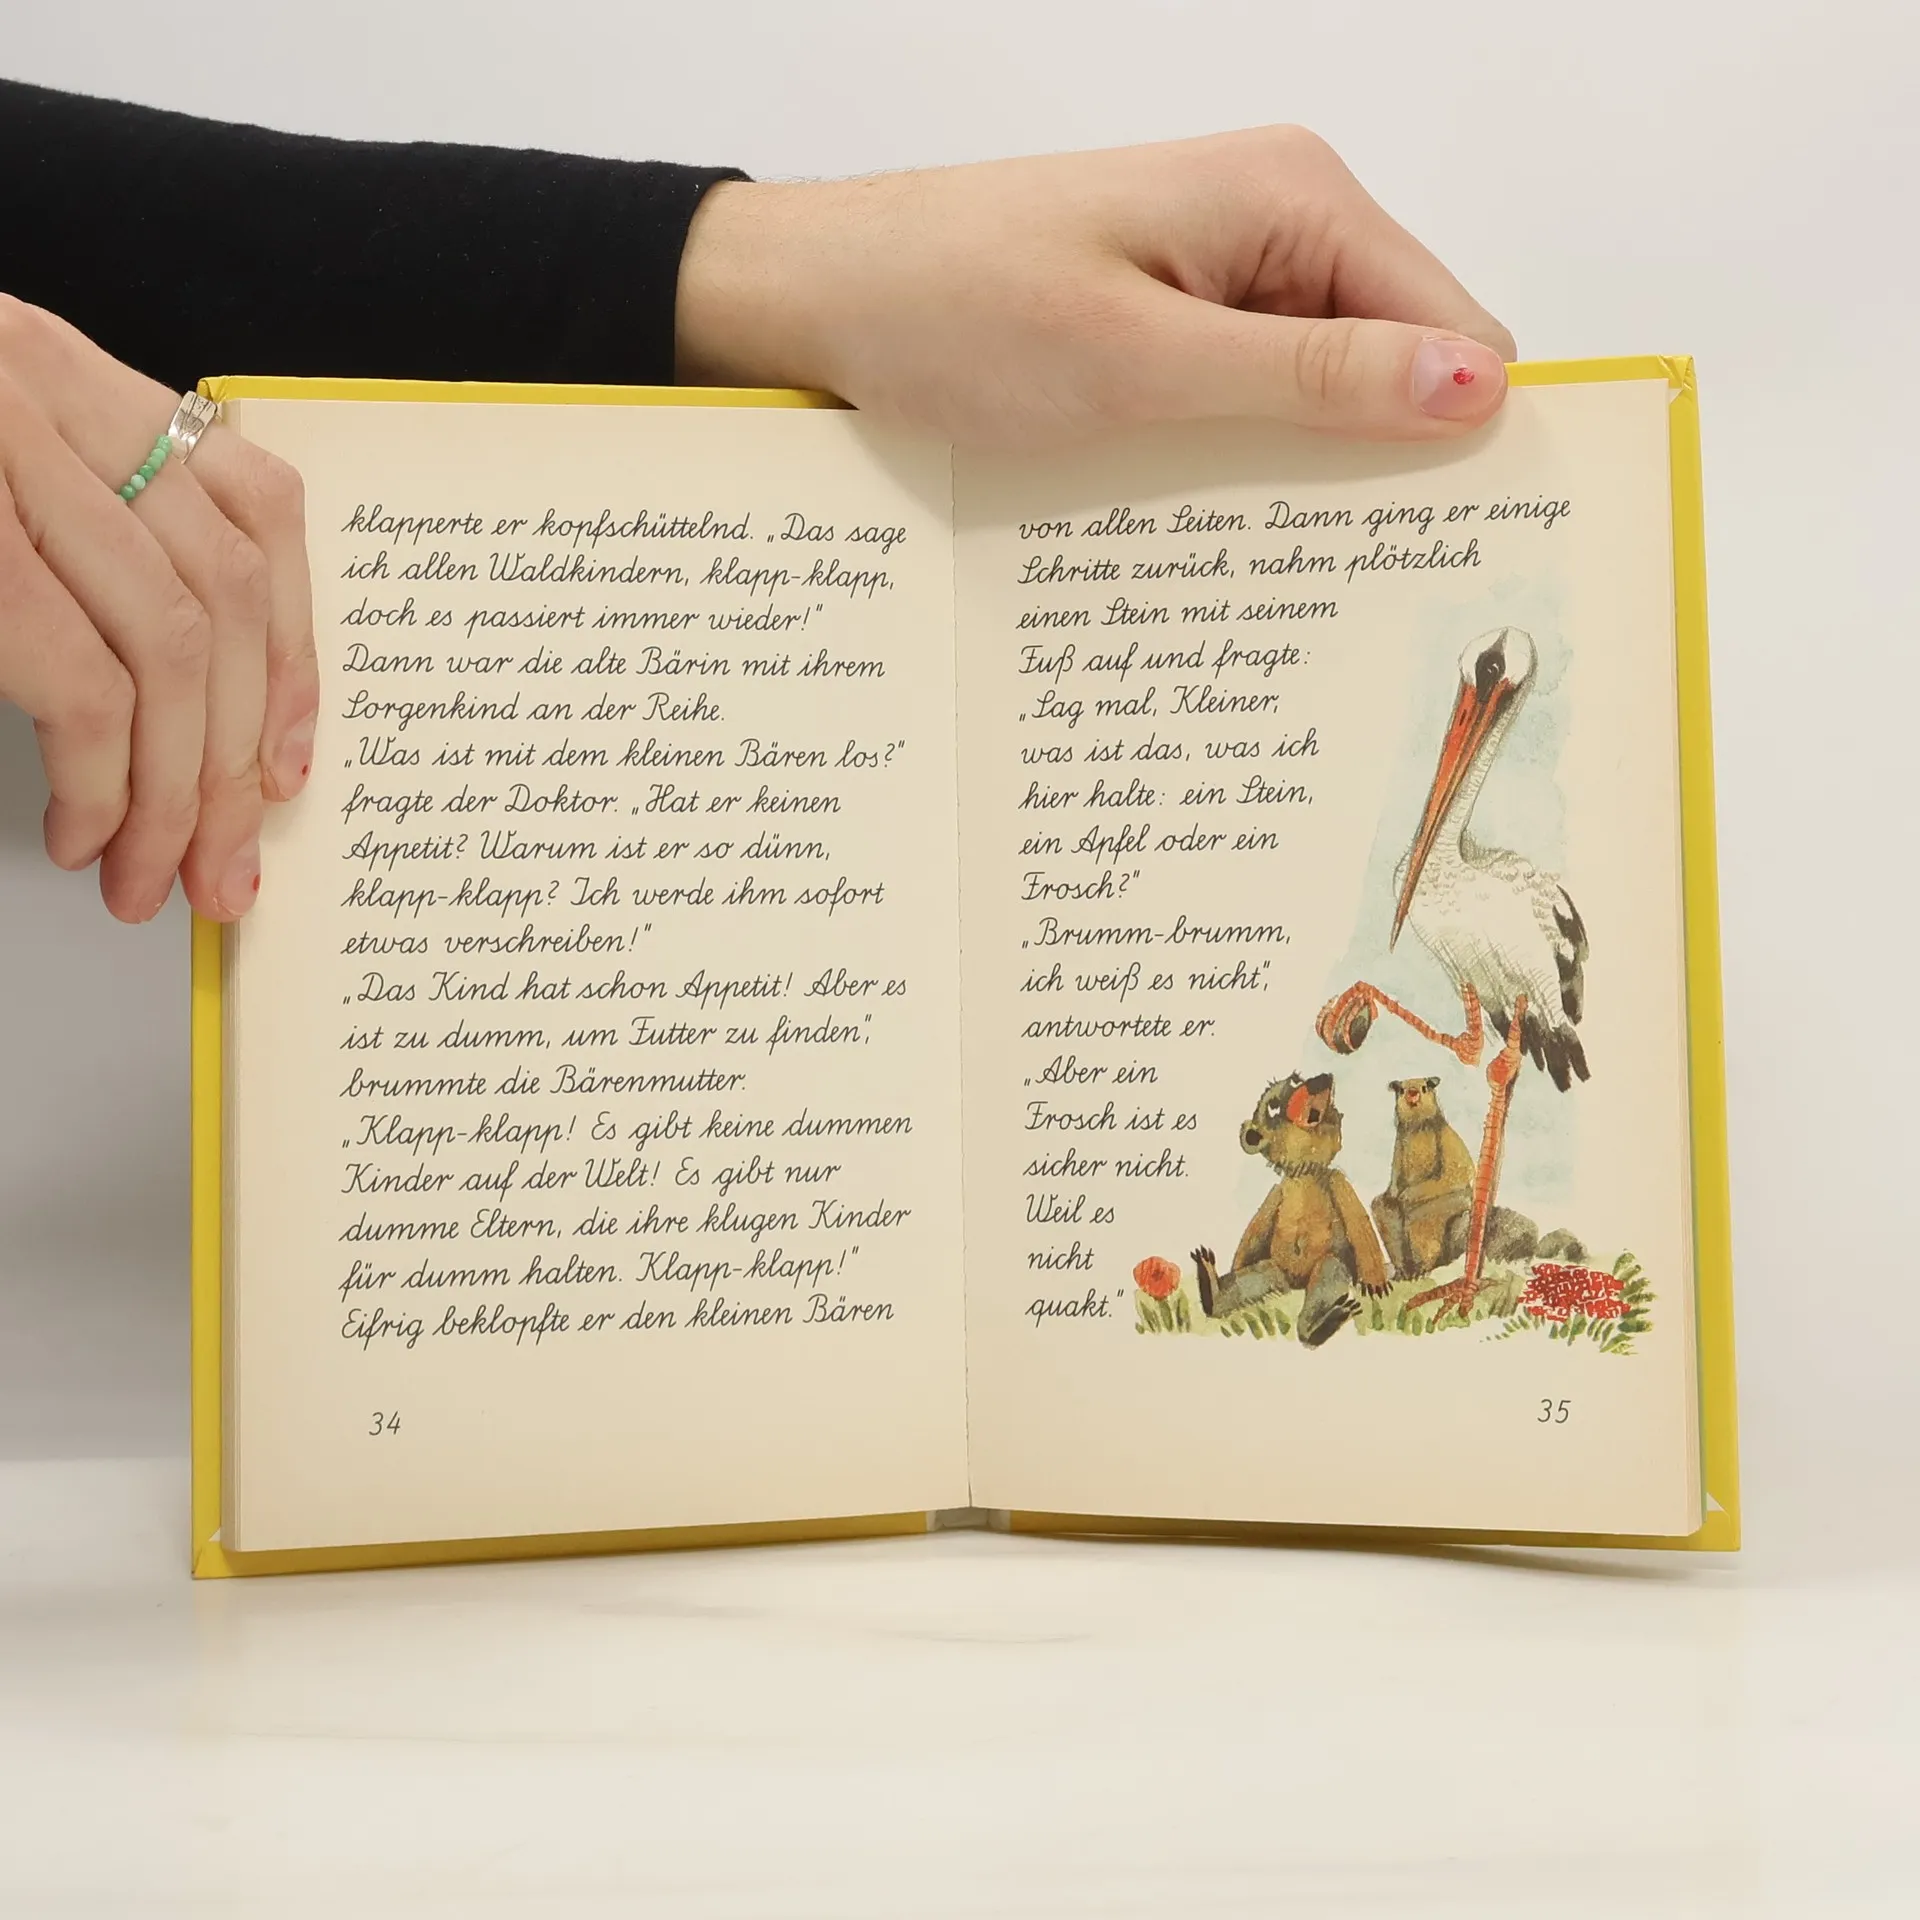 klapperte er kopfschüttelnd. „Das sage
ich allen Waldkindern, klapp-klapp,
doch es passiert immer wieder!"
Dann war die alte Bärin mit ihrem
Sorgenkind an der Reihe.
„Was ist mit dem kleinen Bären los?"
fragte der Doktor. „Hat er keinen
Appetit? Warum ist er so dünn,
klapp-klapp? Ich werde ihm sofort
etwas verschreiben!"
„Das Kind hat schon Appetit! Aber es
ist zu dumm, um Futter zu finden",
brummte die Bärenmutter.
„Klapp-klapp! Es gibt keine dummen
Kinder auf der Welt! Es gibt nur
dumme Eltern, die ihre klugen Kinder
für dumm halten. Klapp-klapp!"
Eifrig beklopfte er den kleinen Bären
34
von allen Seiten. Dann ging er einige
Schritte zurück, nahm plötzlich
einen Stein mit seinem
Fuß auf und fragte:
„Sag mal, Kleiner,
was ist das, was ich
hier halte: ein Stein,
ein Apfel oder ein
Frosch?"
„Brumm-brumm,
ich weiß es nicht",
antwortete er.
„Aber ein
Frosch ist es
sicher nicht.
Weil es
nicht
quakt."
35